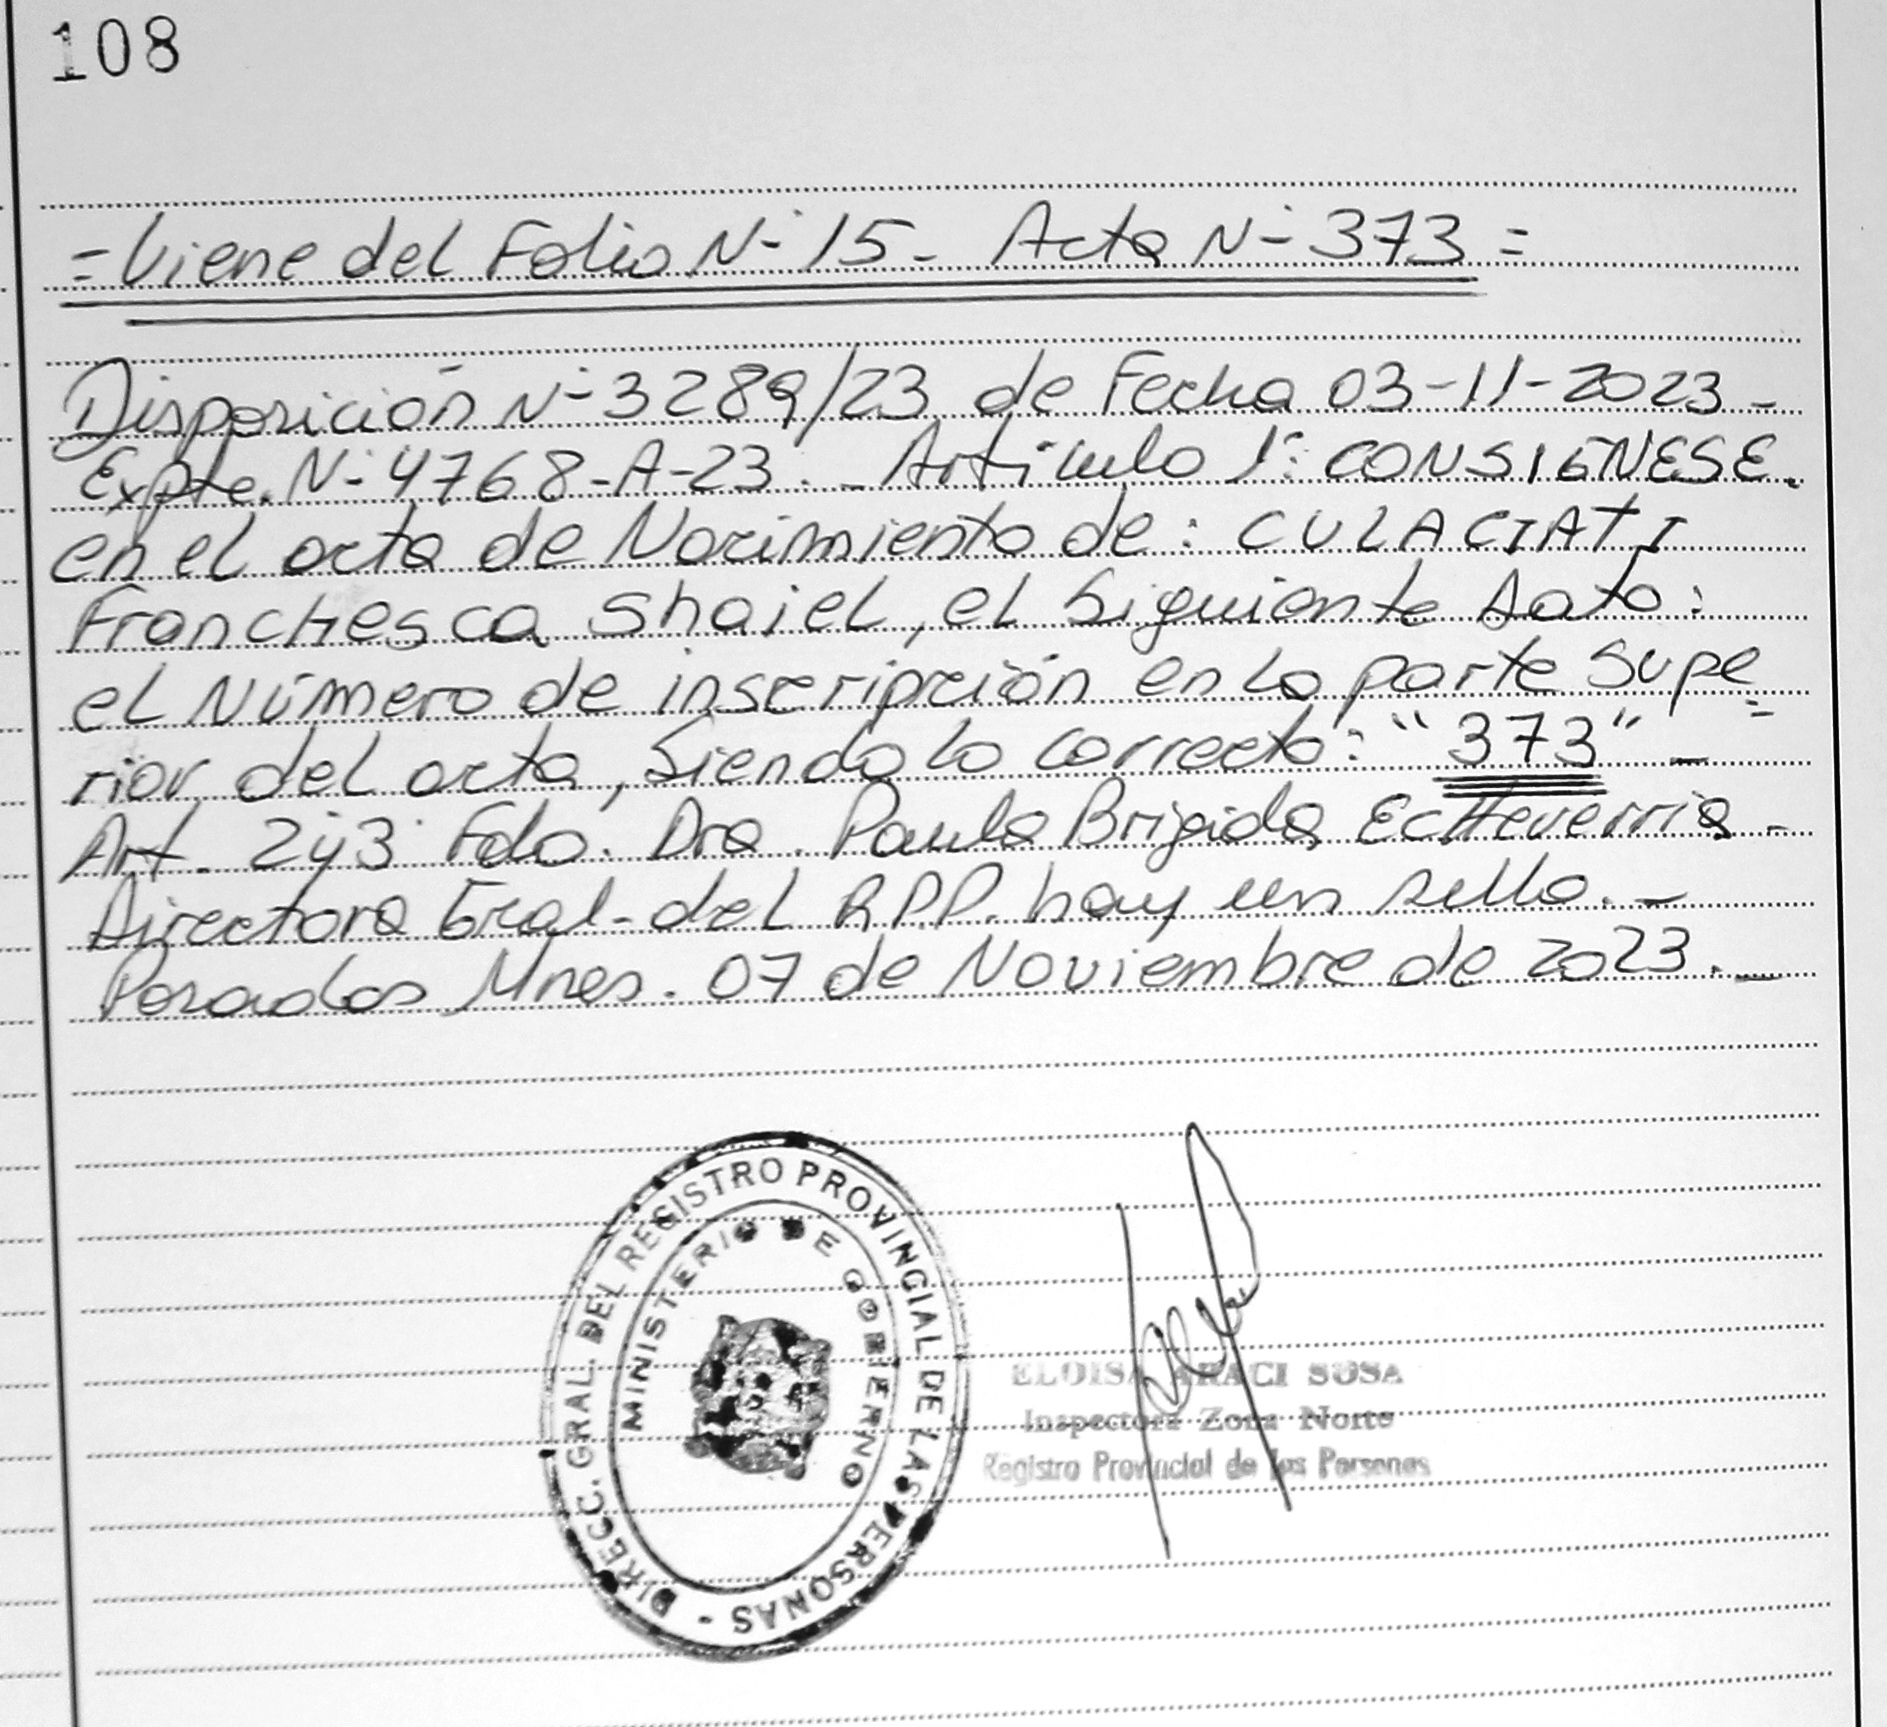 108
= Viene del Folio N- 15 - Acta N- 373 =
Disposición N- 3289/23 de Fecha 03-11-2023 -
Expte. N- 4768-A-23. - Artículo 1: CONSIGNESE.
en el acta de Nacimiento de: CULACIATI
Franchesca Shaiel, el Siguiente dato:
el Número de inscripción en la parte Supe=
rior del acta, Siendo lo correcto: "373" -
Art. 2 y 3 Fdo. Dra. Paula Brigida Echeverria -
Directora Gral - del R.P.P. hay un sello. -
Posadas Mnes. 07 de Noviembre de 2023. -
DIRECC. GRAL. DEL REGISTRO PROVINCIAL DE LAS PERSONAS -
MINISTERIO DE GOBIERNO
ELOISA ARACI SOSA
Inspectora Zona Norte
Registro Provincial de las Personas